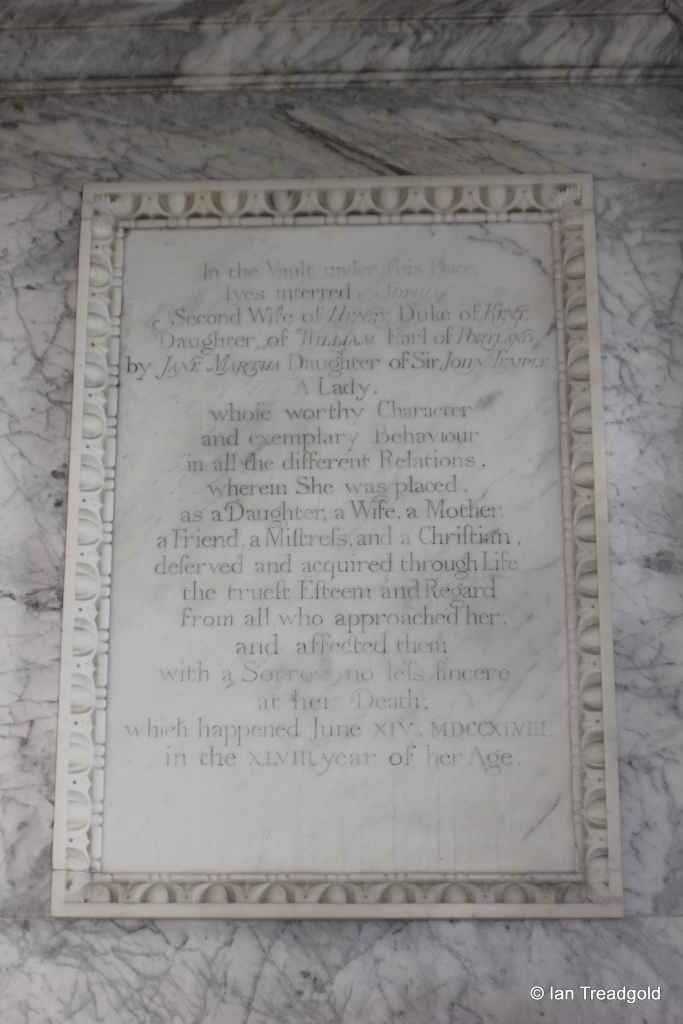 In the Vault under this Place,
lyes interred SOPHIA
Second Wife of HENRY Duke of KENT,
Daughter of WILLIAM Earl of PORTLAND,
by JANE MARTHA Daughter of Sir JOHN TEMPLE
A Lady,
whoſe worthy Character
and exemplary Behaviour
in all the different Relations,
wherein She was placed,
as a Daughter, a Wife, a Mother,
a Friend, a Miſtreſs, and a Chriſtian,
deſerved and acquired through Life
the trueſt Eſteem and Regard
from all who approached her;
and affected them
with a Sorrow no leſs ſincere
at her Death;
which happened June XIV, MDCCXLVIII,
in the XLVIII year of her Age.
© Ian Treadgold